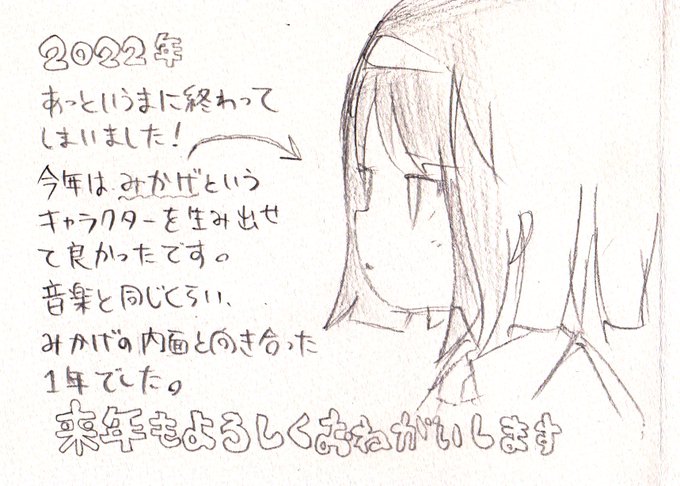 2022年
あっというまに終わって
しまいました！
今年はみかげという
キャラクターを生み出せ
て良かったです。
音楽と同じくらい、
みかげの内面と向き合った
1年でした。
来年もよろしくおねがいします